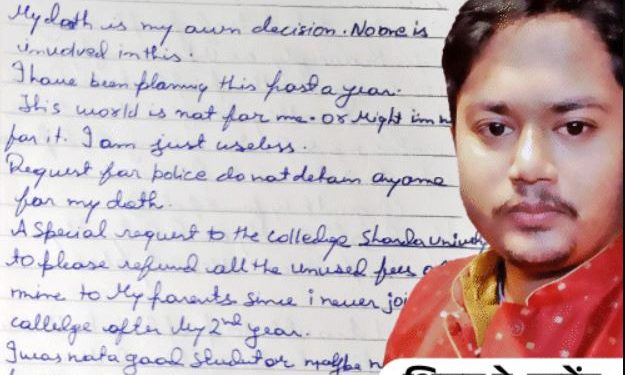 My death is my own decision. No one is
invudved in this.
I have been planning this past a year.
This world is not for me. or Might im
for it. I am just useless.
Request for police do not detain anyone
for my death.
A Special request to the colledge Sharda
to please refund all the unused fees
mine to My parents since i never
callelge after My 2nd year.
I was not a good Student or maybe